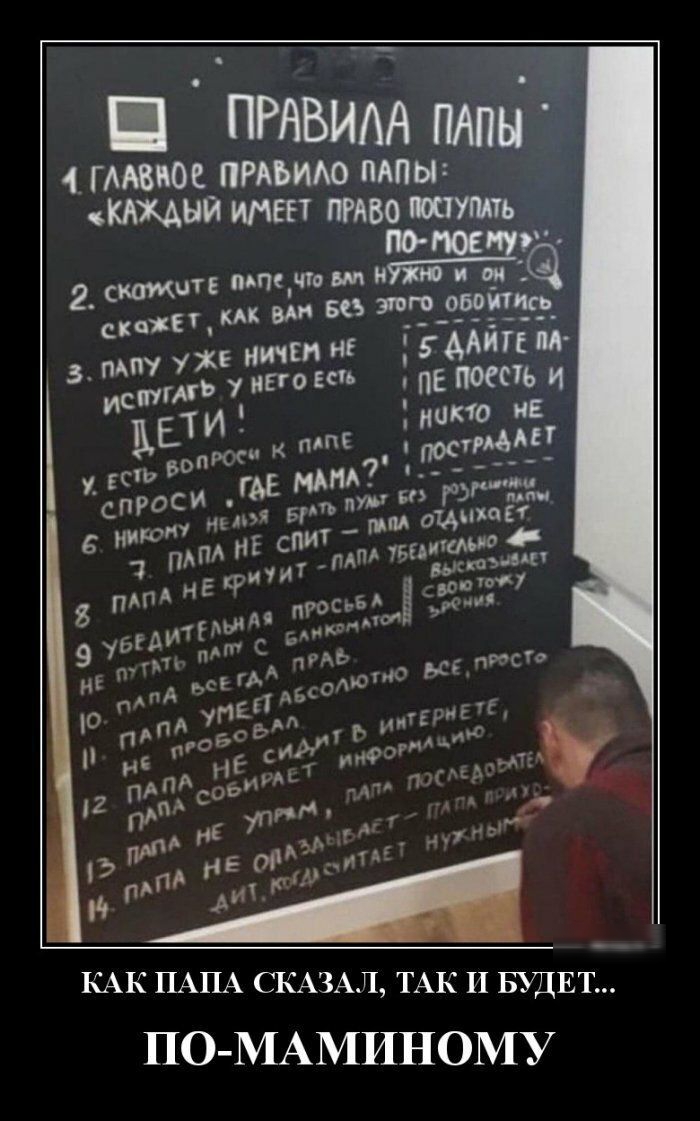 ПРАВИЛА ПАПЫ
1. ГЛАВНОЕ ПРАВИЛО ПАПЫ:
«КАЖДЫЙ ИМЕЕТ ПРАВО ПОСТУПАТЬ
ПО-МОЕМУ»
2. СКАЖИТЕ ПАПЕ, ЧТО ВАМ НУЖНО И ОН
СКАЖЕТ, КАК ВАМ БЕЗ ЭТОГО ОБОЙТИСЬ
3. ПАПУ УЖЕ НИЧЕМ НЕ
ИСПУГАТЬ У НЕГО ЕСТЬ
ДЕТИ!
4. ЕСТЬ ВОПРОСЫ К ПАПЕ
СПРОСИ „ГДЕ МАМА?"
5 ДАЙТЕ ПА-
ПЕ ПОЕСТЬ И
НИКТО НЕ
ПОСТРАДАЕТ
6. НИКОМУ НЕЛЬЗЯ БРАТЬ ПУЛЬТ БЕЗ РОЗРЕШЕНИЯ
ПАПЫ.
7. ПАПА НЕ СПИТ – ПАПА ОТДЫХАЕТ.
8 ПАПА НЕ КРИЧИТ - ПАПА УБЕДИТЕЛЬНО
ВЫСКАЗЫВАЕТ
СВОЮ ТОЧКУ
ЗРЕНИЯ.
9 УБЕДИТЕЛЬНАЯ ПРОСЬБА
НЕ ПУТАТЬ ПАПУ С БАНКОМАТОМ
10. ПАПА ВСЕГДА ПРАВ.
11. ПАПА УМЕЕТ АБСОЛЮТНО ВСЕ, ПРОСТО
НЕ ПРОБОВАЛ
12 ПАПА НЕ СИДИТ В ИНТЕРНЕТЕ,
ПАПА СОБИРАЕТ ИНФОРМАЦИЮ.
13 ПАПА НЕ УПРЯМ, ПАПА ПОСЛЕДОВАТЕЛ
14. ПАПА НЕ ОПАЗДЫВАЕТ – ПАПА ПРИХО-
ДИТ, КОГДА СЧИТАЕТ НУЖНЫМ
КАК ПАПА СКАЗАЛ, ТАК И БУДЕТ...
ПО-МАМИНОМУ